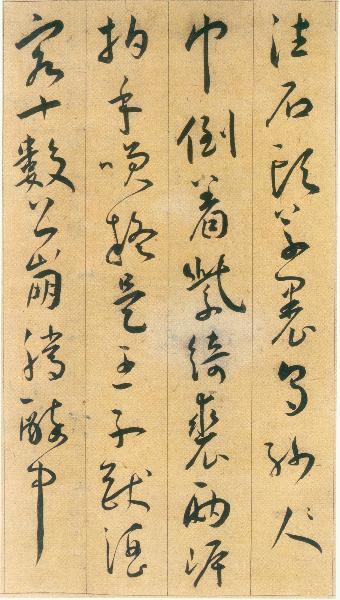 往石頭草裹烏紗人
巾倒著紫綺裘兩岸
拍手咲擬是王子猷酒
客十數公崩騰醉中